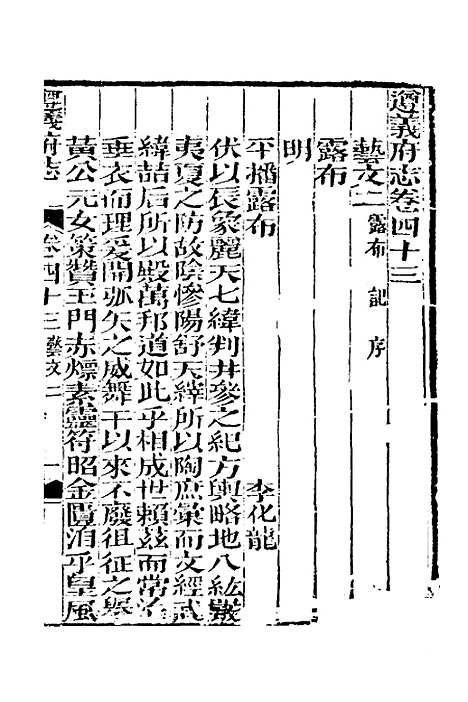 遵義府志卷四十三
藝文二 露布 記 序
露布
明
平播露布 李化龍
伏以長象麗天七緯判井參之紀方輿略地八紘嚴
夷夏之防故陰慘陽舒天繹所以陶庶彙而文經武
緯喆后所以殿萬邦道如此乎相成世賴茲而常治
垂衣而理爰開弧矢之威舞干以來不廢徂征之舉
黃公元女策贊玉門赤熛素靈符昭金匱洎乎皇風
遵義府志 卷四十三 藝文二 一